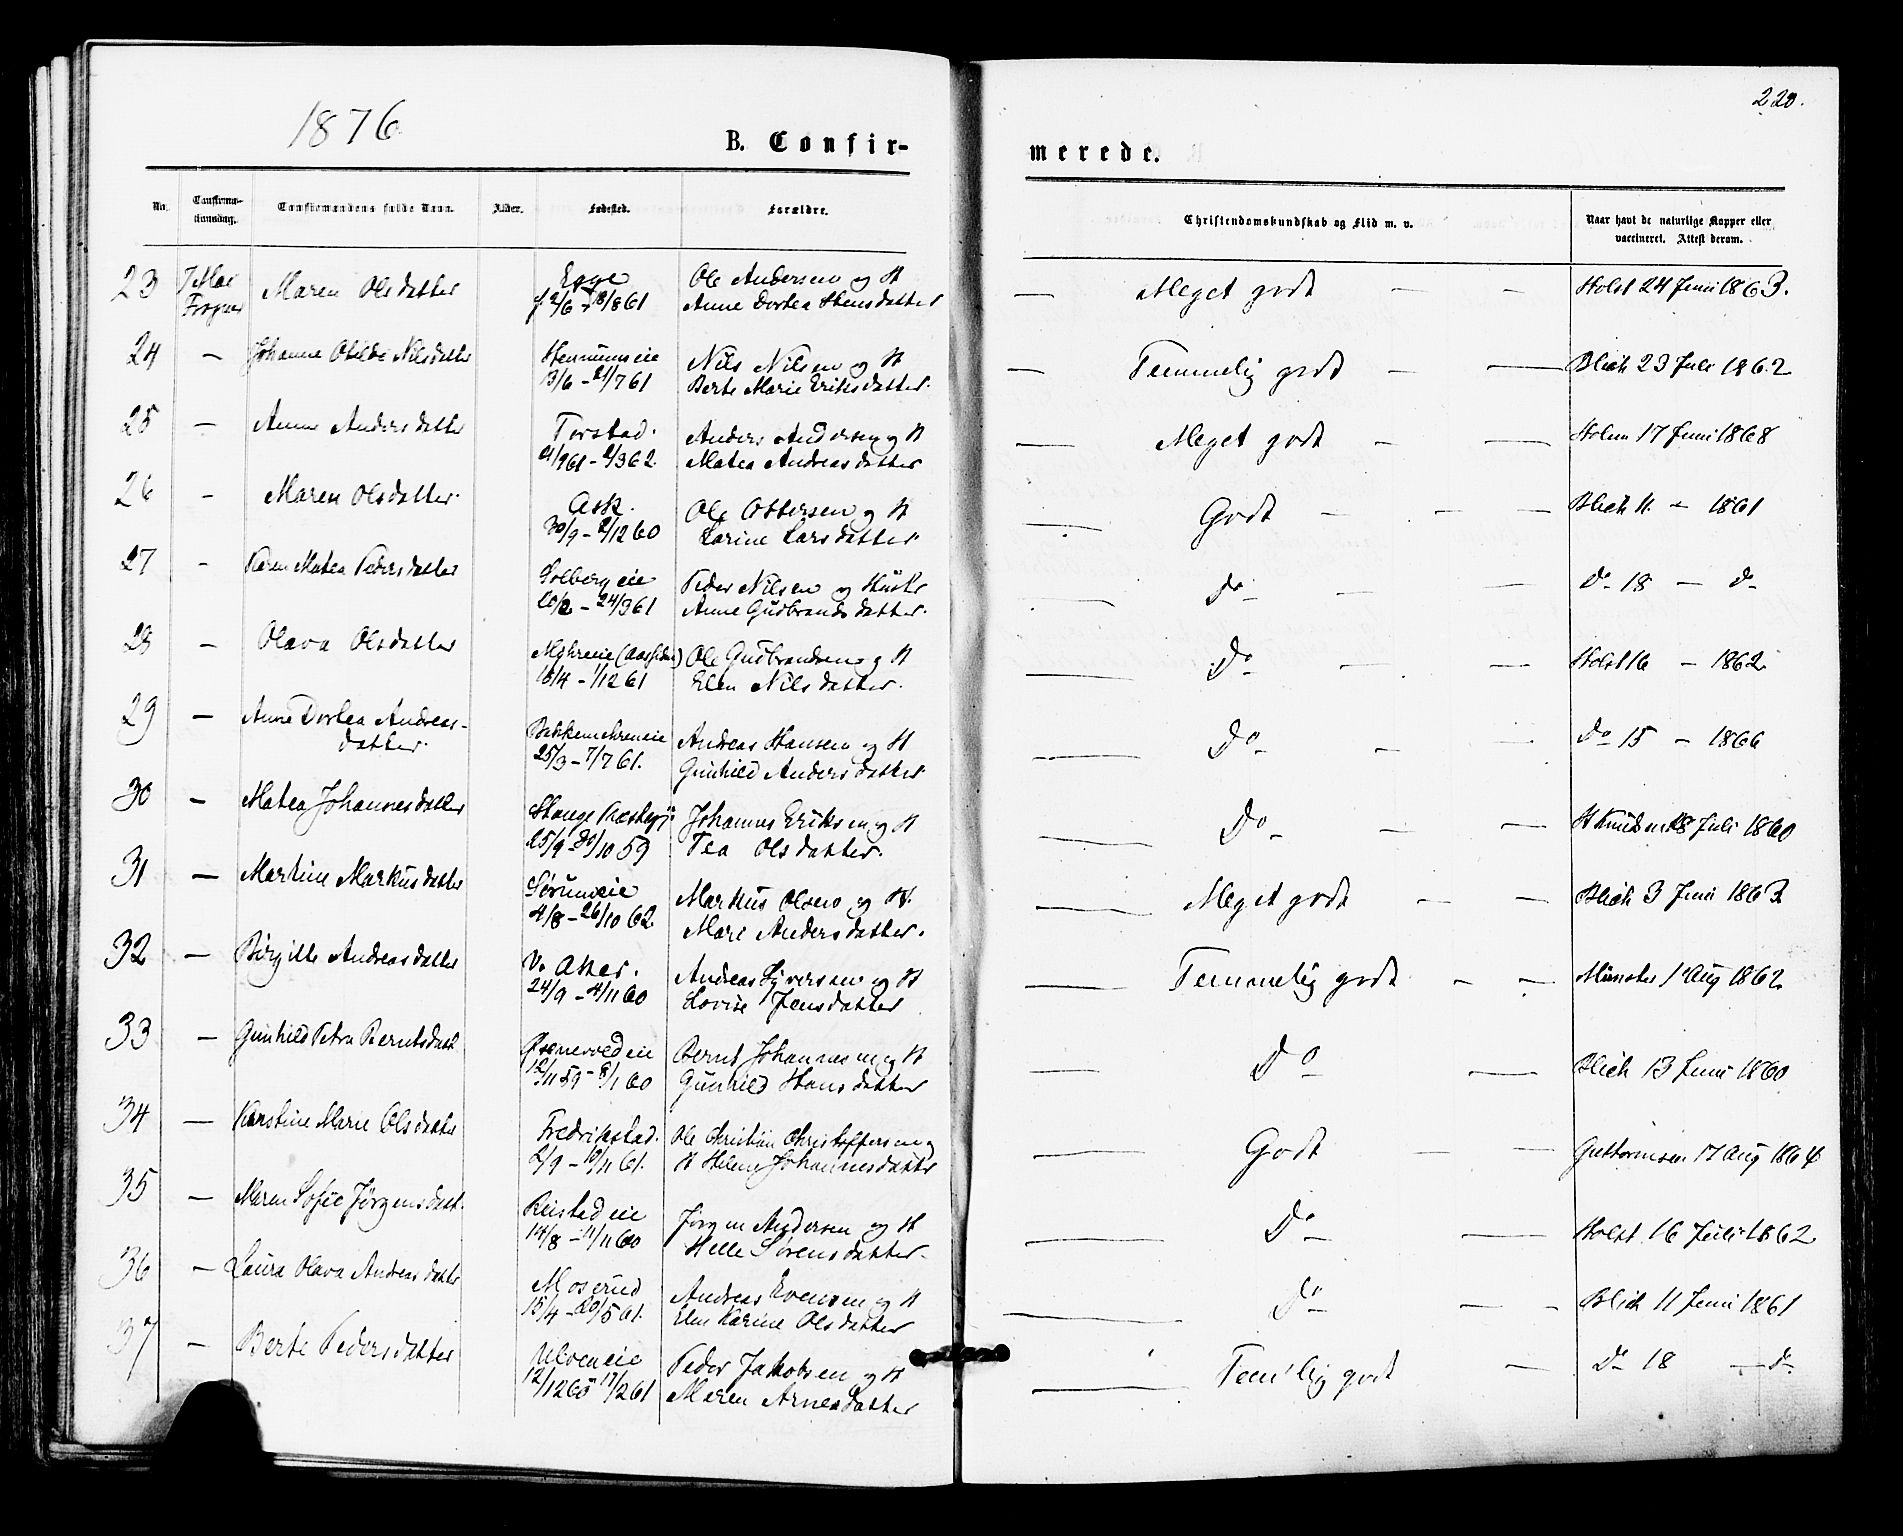 1876
220.
B. Confir-
merede.
No.
Confirma-
tionsdag.
Confirmandens fulde Navn.
Alder.
Fødested.
Forældre.
Christendomskundskab og Flid m. v.
Naar havt de naturlige Kopper eller
vaccineret. Attest derom.
23 7 Mai Maren Olsdatter Egge Ole Andersen og H — Meget godt — — Holst 24 Juni 1863.
Frogner /6 - 18/8 61 Anne Dortea Hansdatter
24 — Johanne Otilde Nilsdatter Hennumeie Nils Nilsen og H — Temmelig godt — — Blich 23 Juli 1862
13/6 - 21/7 61 Berte Marie Eriksdatter.
25 — Anne Andersdatter Torstad. Anders Andersen og H — Meget godt — — Holm 17 Juni 1868
/9 61 - 2/3 62. Matea Andreasdatter
26 - Maren Olsdatter. Ask. Ole Ottersen og H — Godt — — — Blich 11. — 1861
30/9 - 2/12 60 Karine Larsdatter
27 - Karen Matea Pedersdatter Solbergeie Peder Nilsen og Hustr — Do — — Do 18 — Do
10/2 - 24/3 61 Anne Gudbrandsdatter.
28 — Olava Olsdatter Myhreeie (Aassiden) Ole Gudbrandsen og H — Do — — Holst 16 — 1862
18/4 - 1/12 61 Elen Nilsdatter.
29 — Anne Dortea Andreas- Bakkemehreneie Andreas Hansen og H — Do — — Do 15 — 1866
datter. 25/3 - 7/7 61. Gunhild Andersdatter
30 — Matea Johannesdatter Stange Præstegj: Johannes Eriksen og H — Do — — H Knudsen 18 Juli 1860
15/9 - 30/10 59 Tea Olsdatter.
31 — Martine Markusdatter Sørumeie Markus Olsen og H. — Meget godt — — Blich 3 Juni 1863
4/8 - 26/10 62 Mari Andersdatter.
32 — Birgitte Andreasdatter V. Aker. Andreas Syversen og H — Temmelig godt — — Münster 1 Aug 1862
24/9 - 4/11 60 Lovise Jensdatter
33 — Gunhild Petra Berntsdatt Bernt Johannesen og H — Do — Blich 13 Juni 1860
12/11 59 - 8/1 60 Gunhild Hansdatter
34 — Karstine Marie Olsdatter Fredrikstad. Ole Christian Christoffersen og — Godt — — Guttormsen 17 Aug 1864
2/9 - 10/11 61. H Helene Johannesdatter
35 — Maren Sofie Jørgensdatt. Reistadeie Jørgen Andersen og H — Do — Holst 16 Juli 1862
14/8 - 11/11 60 Helle Sørensdatter
36 — Laura Olava Andreasdatter Moserud Andreas Evensen og H — Do — — Blich 11 Juni 1861
15/4 - 20/5 61. Elen Karine Olsdatter
37 — Berte Pedersdatter Ulveneie Peder Jakobsen og H — Tem'lig godt — Do 18 — Do
12/12 60 - 17/2 61 Maren Arnesdatter